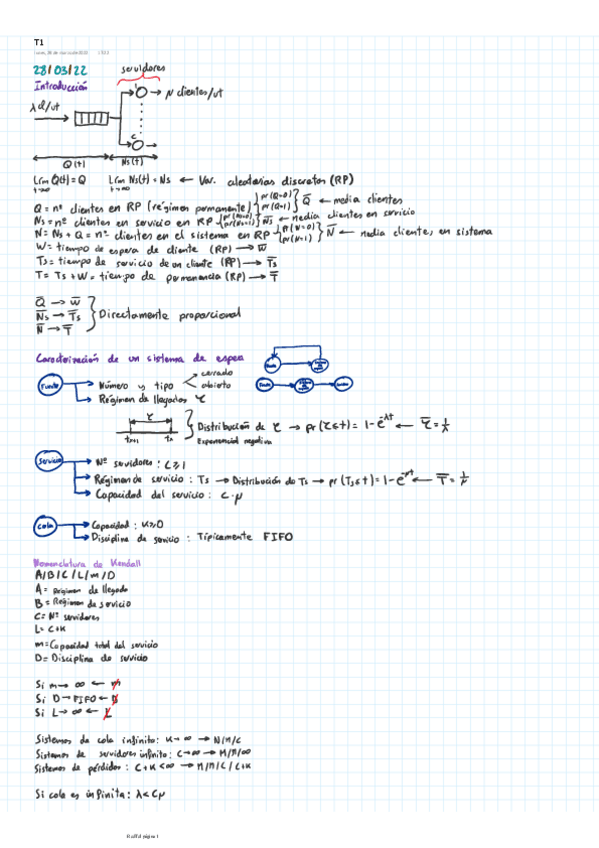 T1
28/03/22
servidores
Introducción
λ cl/ut
1
μ clientes/ut
c
Q(t)
Ns(t)
Lim Q(t) = Q
t→∞
Lim Ns(t) = Ns ← Var. aleatorias discretas (RP)
t→∞
Q = nº clientes en RP (régimen permanente) { pr(Q=0) pr(Q=1) } Q̄ ← media clientes
Ns = nº clientes en servicio en RP { pr(Ns=0) pr(Ns=1) } N̄s ← media clientes en servicio
N = Ns + Q = nº clientes en el sistema en RP { pr(N=0) pr(N=1) } N̄ ← media clientes en sistema
W = tiempo de espera de cliente (RP) → W̄
Ts = tiempo de servicio de un cliente (RP) → T̄s
T = Ts + W = tiempo de permanencia (RP) → T̄
Q̄ → W̄
N̄s → T̄s
N̄ → T̄
Directamente proporcional
Caracterización de un sistema de espera
Fuente
Número y tipo
cerrado
abierto
Régimen de llegadas τ
τ
Distribución de τ → pr(τ≤t) = 1-e^-λt ← τ̄ = 1/λ
Exponencial negativa
Servicio
Nº servidores : C≥1
Régimen de servicio : Ts → Distribución de Ts → pr(Ts≤t) = 1-e^-μt ← T̄ = 1/μ
Capacidad del servicio : C·μ
Cola
Capacidad : K≥0
Disciplina de servicio : Típicamente FIFO
Nomenclatura de Kendall
A/B/C/L/m/D
A = Régimen de llegada
B = Régimen de servicio
C = Nº servidores
L = C+K
m = Capacidad total del servicio
D = Disciplina de servicio
Si m → ∞ ← m
Si D → FIFO ← D
Si L → ∞ ← L
Sistemas de cola infinito : K → ∞ → M/M/C
Sistemas de servidores infinito : C → ∞ → M/M/∞
Sistemas de pérdidas : C+K < ∞ → M/M/C/C+K
Si cola es infinita : λ < Cμ